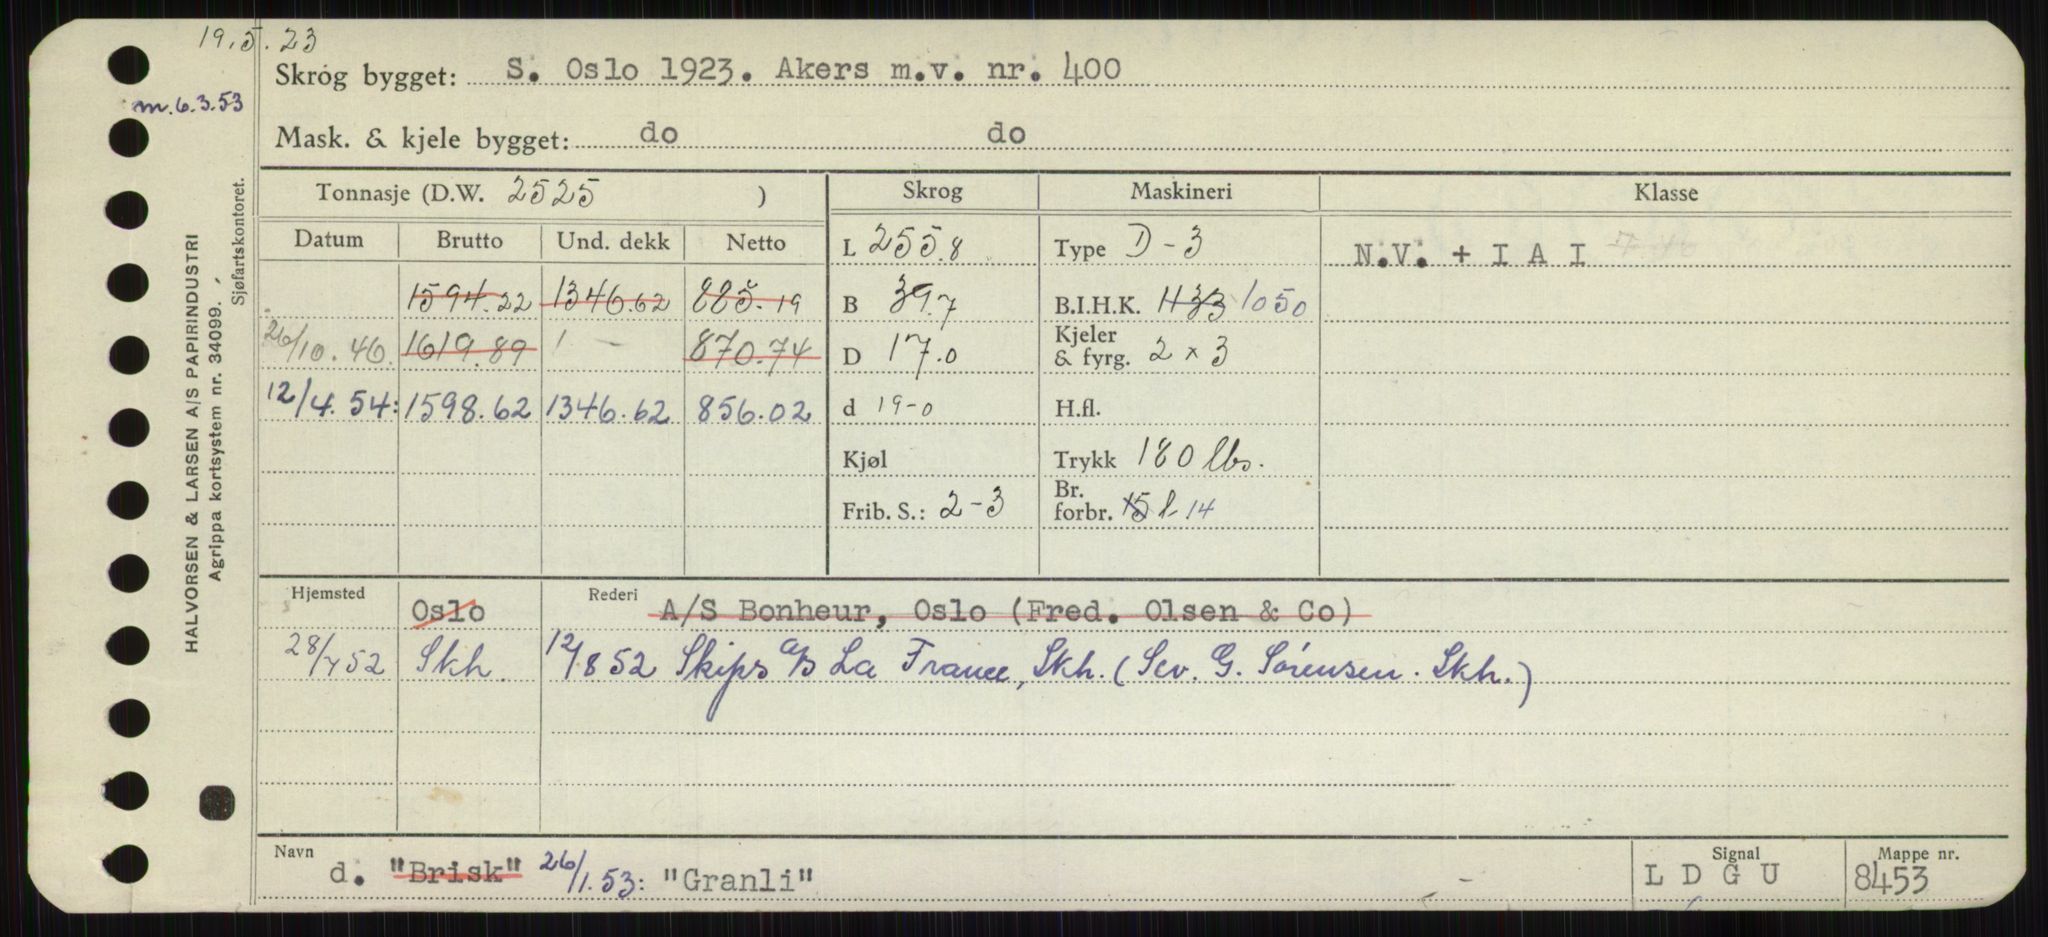 19.5.23
Skrog bygget: S. Oslo 1923. Akers m.v. nr. 400
m. 6.3.53
Mask. & kjele bygget: do do
Tonnasje (D.W. 2525 ) Skrog Maskineri Klasse
Datum Brutto Und. dekk Netto L 255.8 Type D-3 N.V. + I A I
1594.22 1346.62 885.19 B 39.7 B.I.H.K. 1133 1050
26/10.46. 1619.89 1 - 870.74 D 17.0 Kjeler & fyrg. 2 x 3
12/4.54: 1598.62 1346.62 856.02 d 19-0 H.fl.
Kjøl Trykk 180 lbs.
Frib. S.: 2-3 Br. forbr. 15 14
Hjemsted Oslo Rederi A/S Bonheur, Oslo (Fred. Olsen & Co)
28/7 52 Skh. 12/8 52 Skips a/s La France, Skh. (Sev. G. Sörensen. Skh.)
Navn d. "Brisk" 26/1.53: "Granli" Signal L D G U Mappe nr. 8453
HALVORSEN & LARSEN A/S PAPIRINDUSTRI
Agrippa kortsystem nr. 34099.
Sjøfartskontoret.